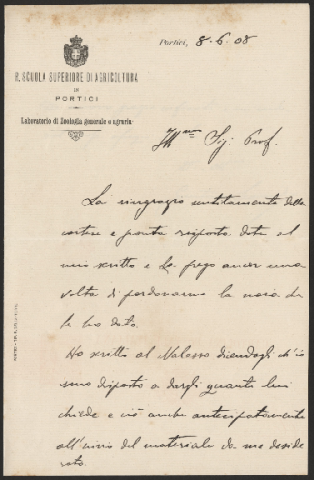 R. SCUOLA SUPERIORE DI AGRICOLTURA
IN
PORTICI
Laboratorio di Zoologia generale e agraria
Portici, 8-6-08
Ill.mo Sig. Prof.
La ringrazio sentitamente della
cortese e pronta risposta data al
mio scritto e La prego ancor una
volta di perdonarmi la noia che
le ho dato.
Ho scritto al Malasso dicendogli ch'io
sono disposto a dargli quanto lui
chiede e ciò anche anticipatamente
all'invio del materiale da me deside
rato.